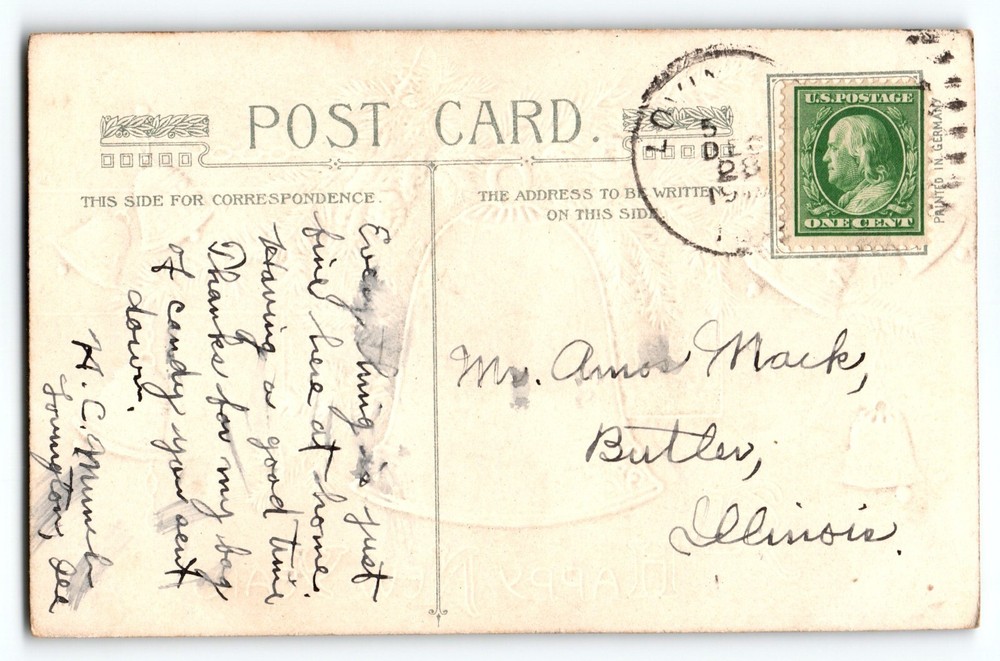 POST CARD.
THIS SIDE FOR CORRESPONDENCE.
THE ADDRESS TO BE WRITTEN
ON THIS SIDE.
5
DEC
28
U.S. POSTAGE
ONE CENT
PRINTED IN GERMANY
Mr. Amos Mack,
Butler,
Illinois.
Everything is just
fine here at home.
Having a good time
Thanks for my bag
of candy you sent
down.
H. C.
Lovington, Ill